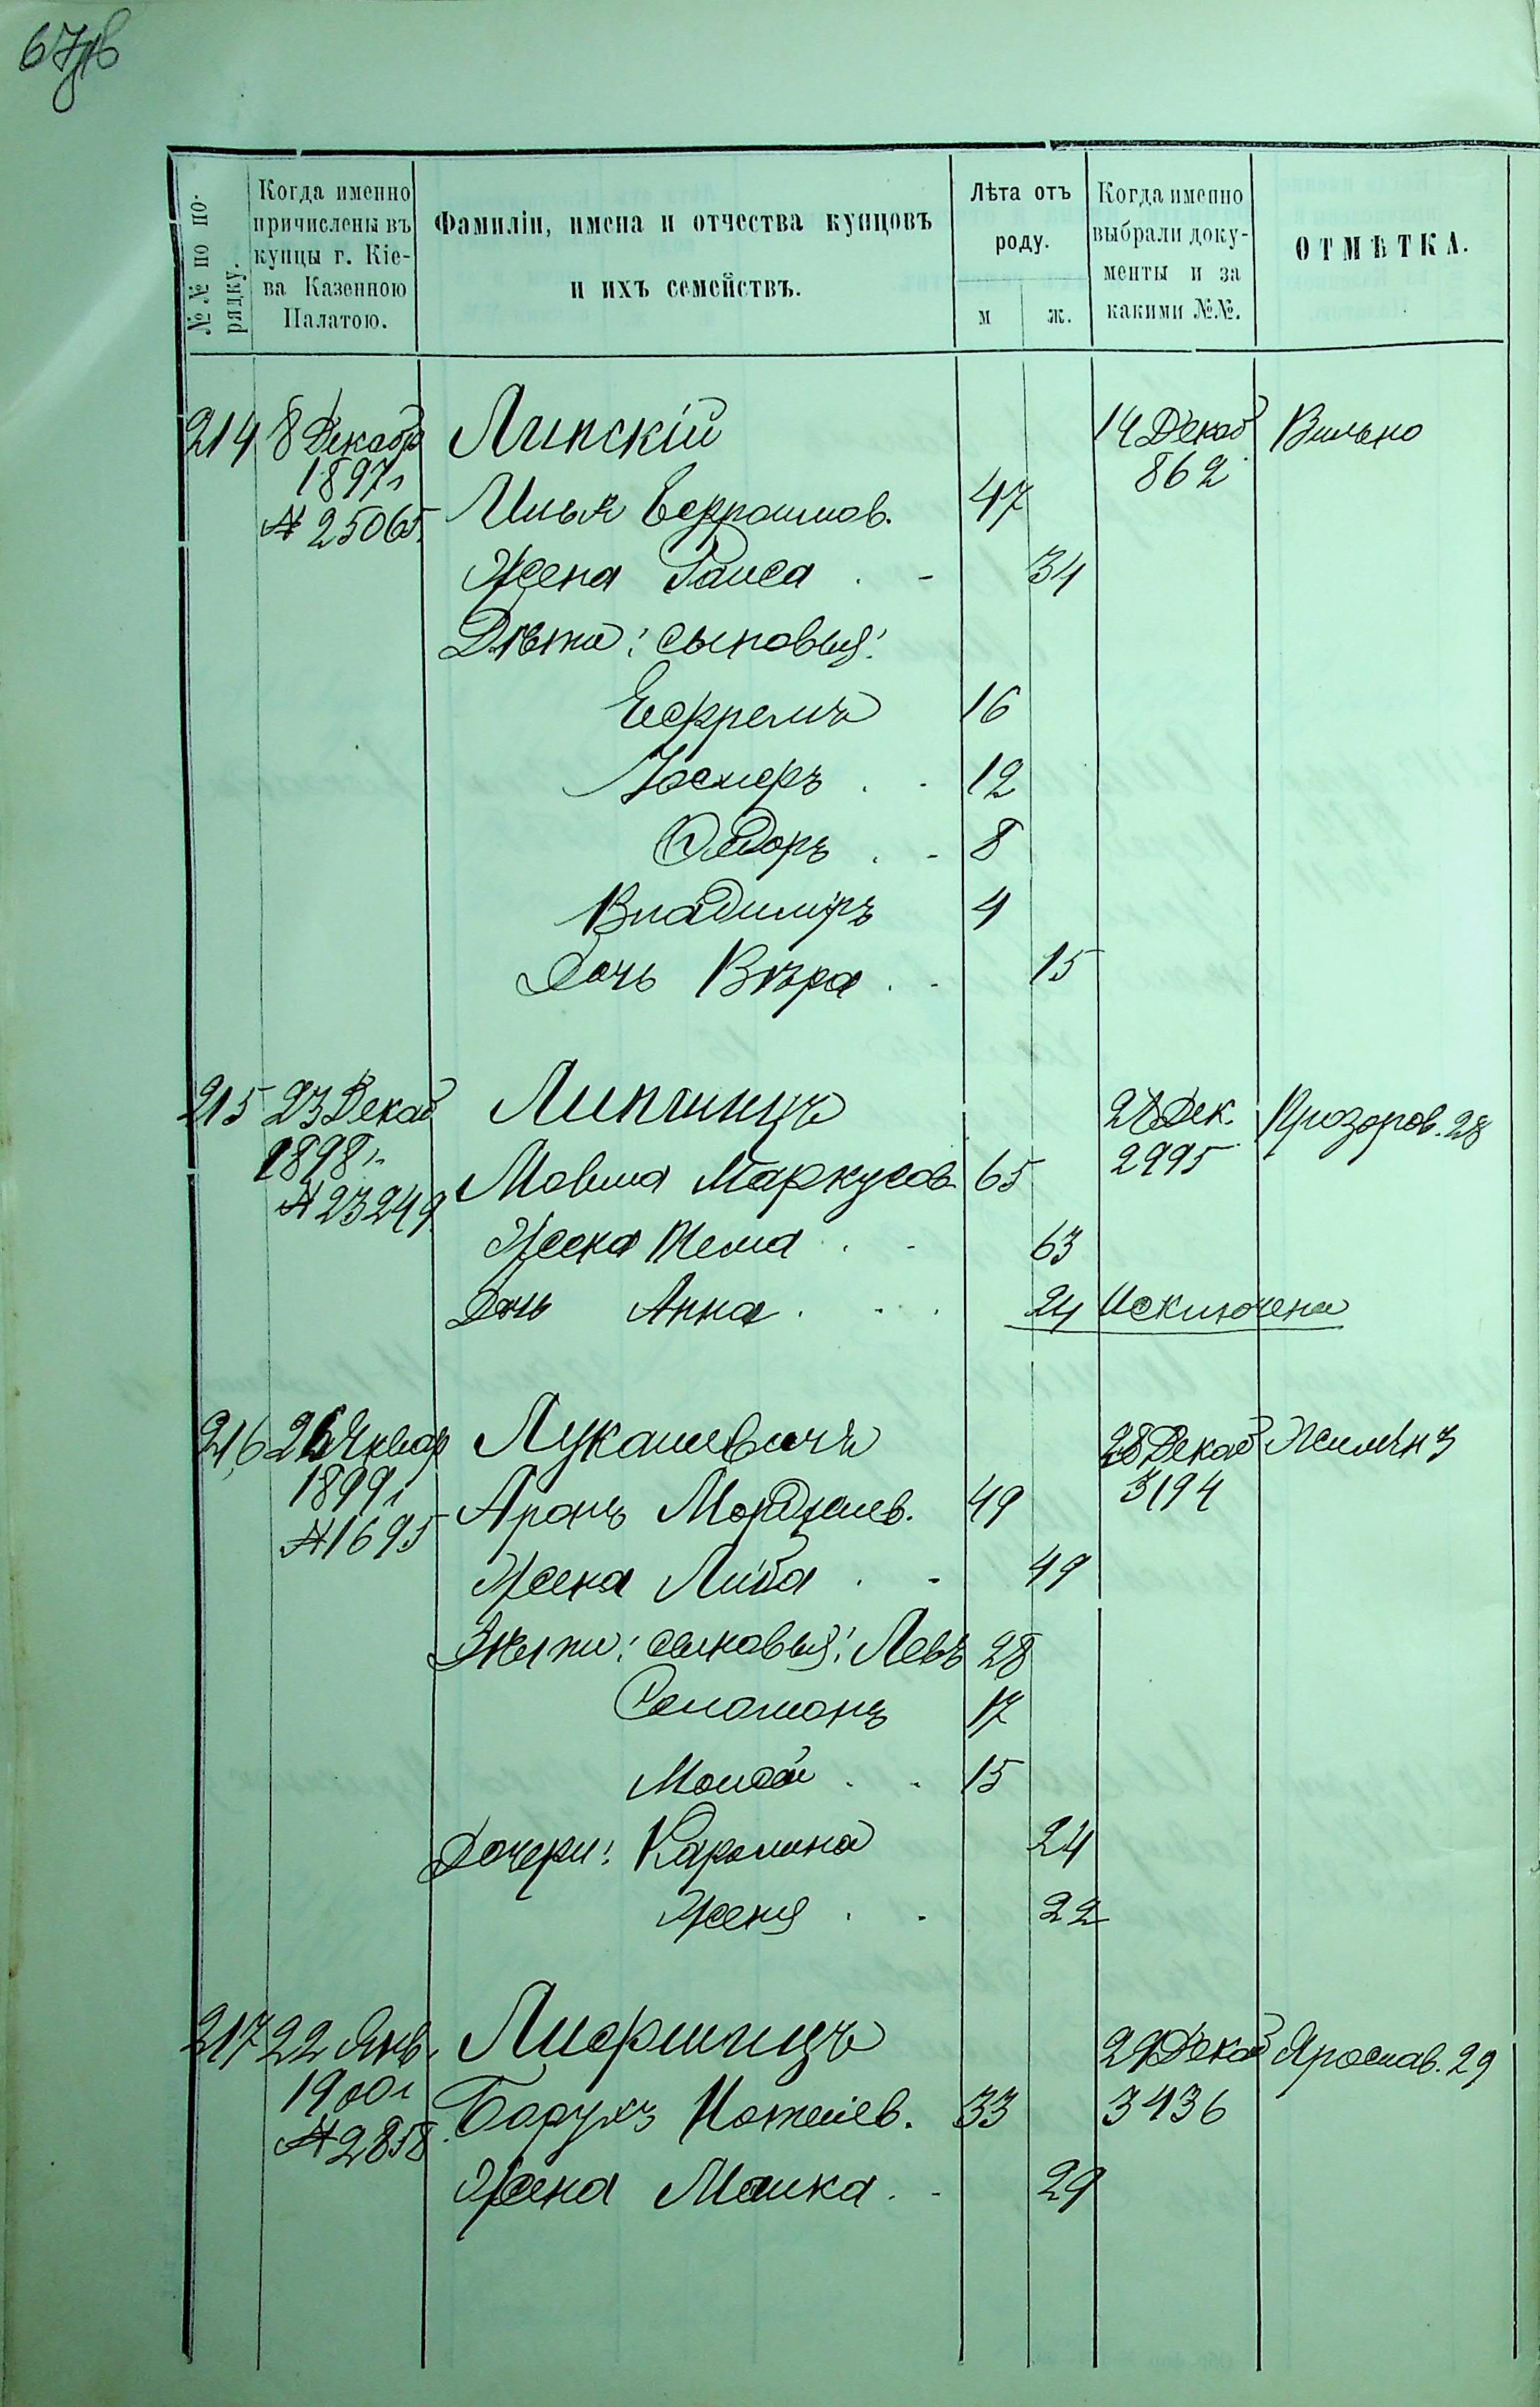 67об
№№ по по-
рядку.
Когда именно
причислены въ
купцы г. Кіе-
ва Казенною
Палатою.
Фамиліи, имена и отчества купцовъ
и ихъ семействъ.
Лѣта отъ
роду.
м
ж.
Когда именно
выбрали доку-
менты и за
какими №№.
ОТМѢТКА.
214 8 Декабр Липскій 14 Декаб Вильно
1897г 862
№ 25065.
Илья Ефроимов. 47
Жена Раиса . - 34
Дѣти: сыновья:
Ефремъ 16
Іосифъ . - 12
Ѳедоръ . - 8
Владиміръ 4
Дочь Вѣра . - 15
215 23 Декаб Липшицъ 28 Дек. Прозоров. 28
1898 г. 2995
№ 23249
Мовша Маркусов 65
Жена Тема . - 63
Дочь Анна . - . 24 Исключена
216 26 Январ Лукашевичъ 28 Декаб
1899г 3194
№ 1695
Аронъ Мордхаев. 49
Жена Либа . - 49
Дѣти: сыновья: Левъ 28
Соломонъ 17
Моисей . - 15
Дочери: Каролина 24
Женя . - 22
217 22 Янв. Лифшицъ 29 Декаб Ярослав. 29
1900г 3436
№ 2858.
Борухъ Нотеліев. 33
Жена Малка . - 29